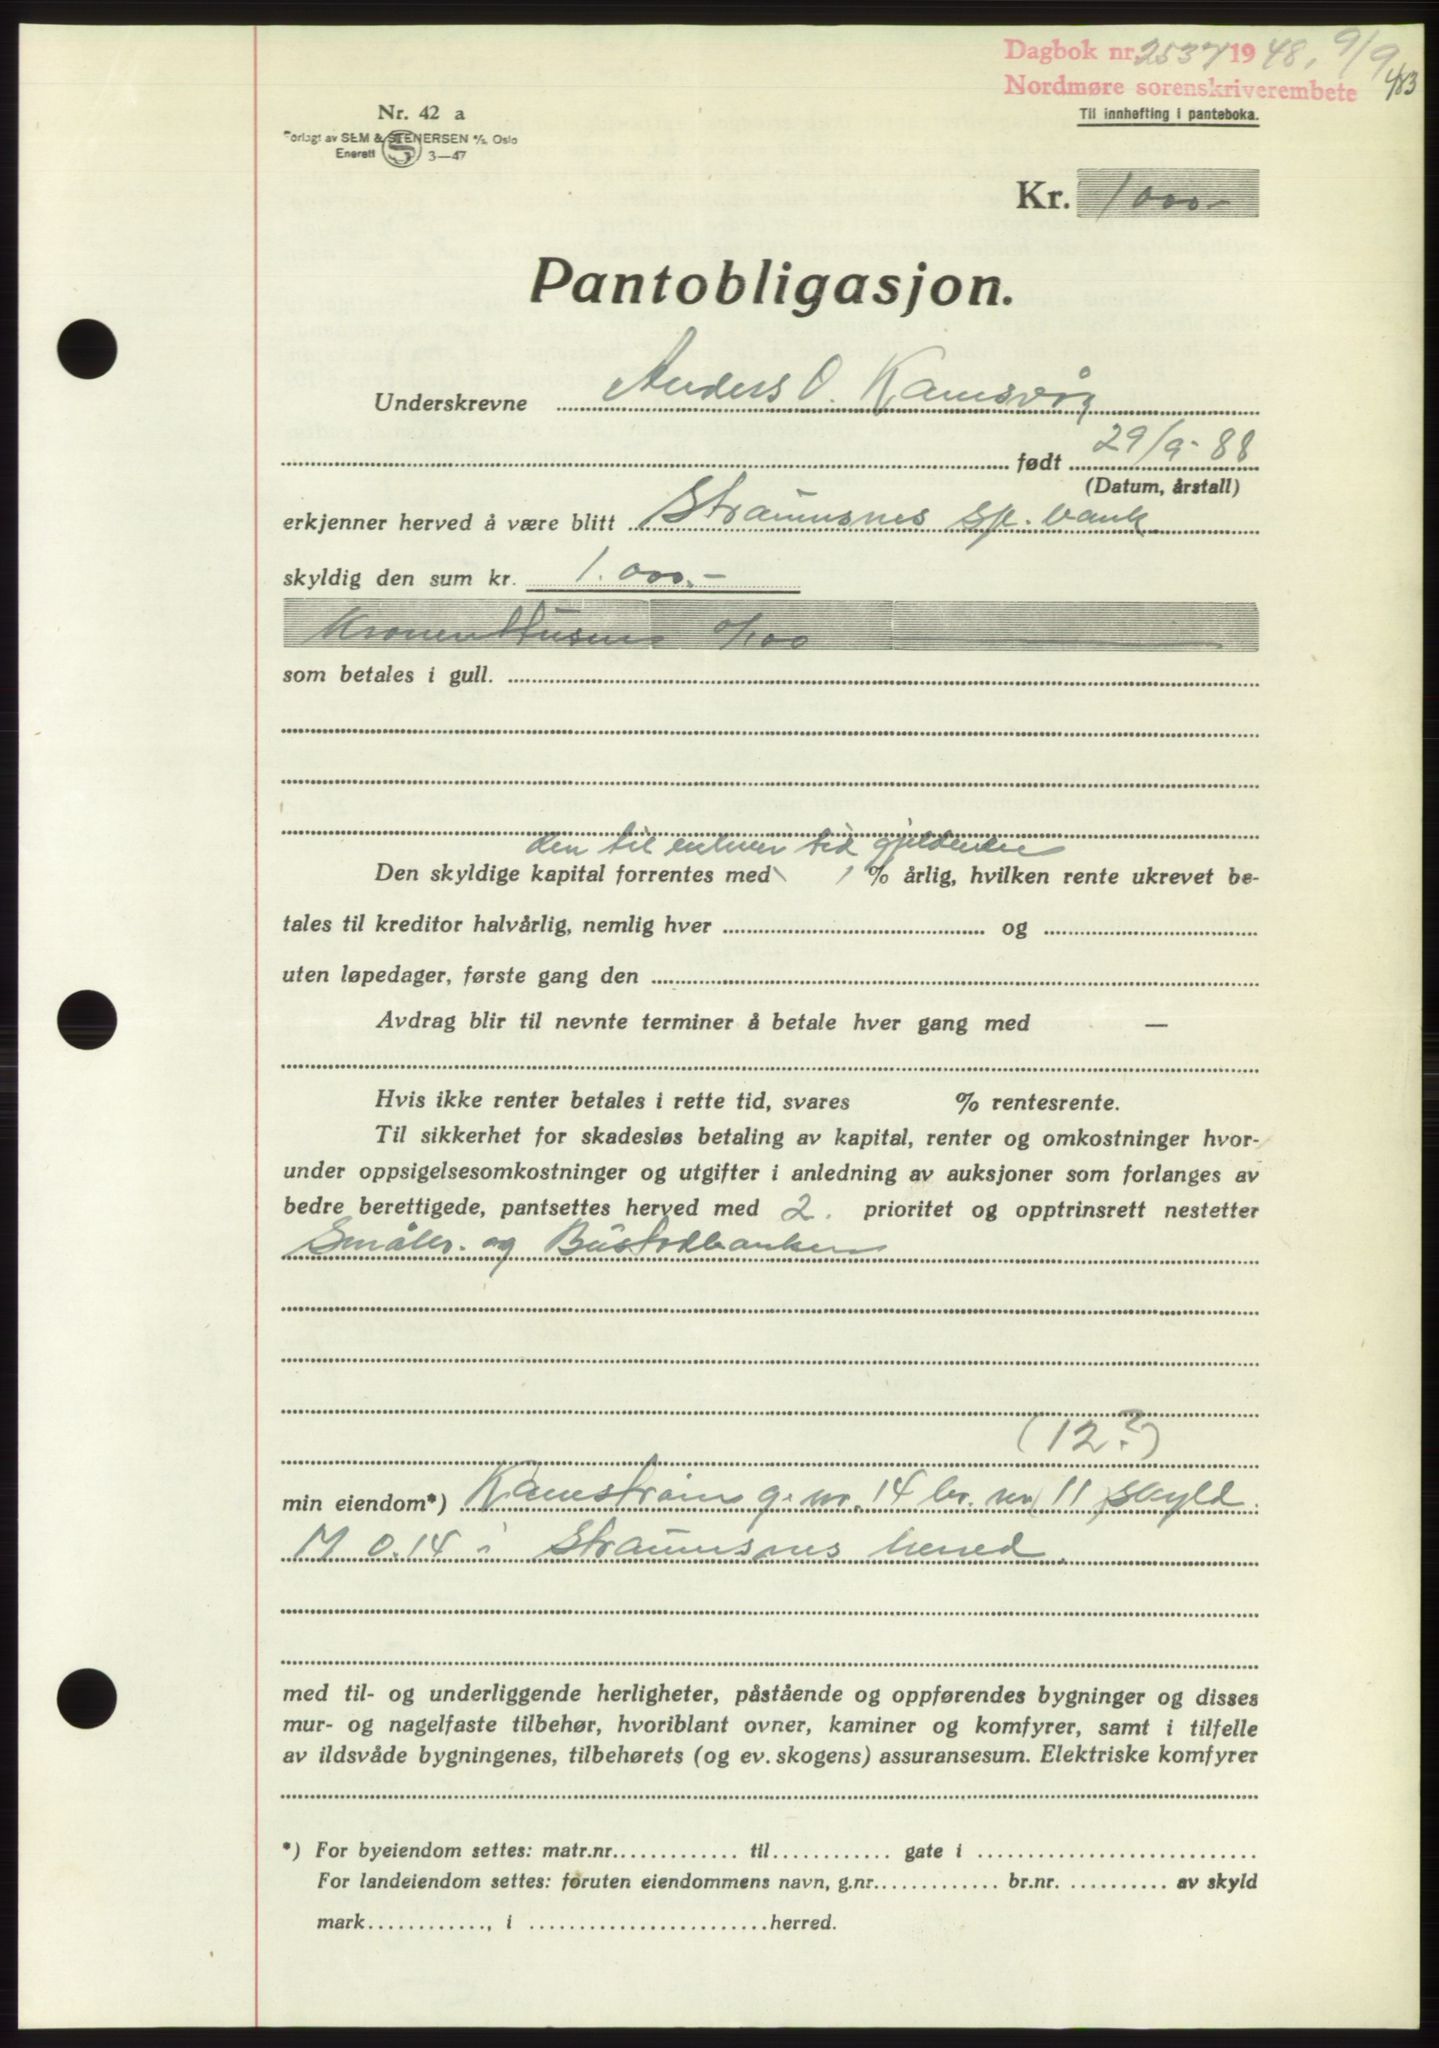 Dagbok nr. 2537 1948, 9/9
Nordmøre sorenskriverembete 483
Til innhefting i panteboka.
Nr. 42 a
Forlagt av SEM & STENERSEN A/S, Oslo
Enerett S 3—47
Kr. 1000-
Pantobligasjon.
Underskrevne Anders O. Kamsvåg
født 29/9-88
(Datum, årstall)
erkjenner herved å være blitt Straumsnes sp.bank
skyldig den sum kr. 1.000.-
Kroner ettusen 0/100
som betales i gull.
den til enhver tid gjeldende
Den skyldige kapital forrentes med % årlig, hvilken rente ukrevet be-
tales til kreditor halvårlig, nemlig hver og
uten løpedager, første gang den
Avdrag blir til nevnte terminer å betale hver gang med —
Hvis ikke renter betales i rette tid, svares % rentesrente.
Til sikkerhet for skadesløs betaling av kapital, renter og omkostninger hvor-
under oppsigelsesomkostninger og utgifter i anledning av auksjoner som forlanges av
bedre berettigede, pantsettes herved med 2. prioritet og opptrinsrett nestetter
Småbr. og Bustadbanken
(12?)
min eiendom*) Kamstrøm g.nr. 14 br. nr (11) skyld
M 0.14 i Straumsnes herred.
med til- og underliggende herligheter, påstående og oppførendes bygninger og disses
mur- og nagelfaste tilbehør, hvoriblant ovner, kaminer og komfyrer, samt i tilfelle
av ildsvåde bygningenes, tilbehørets (og ev. skogens) assuransesum. Elektriske komfyrer
*) For byeiendom settes: matr.nr. til gate i
For landeiendom settes: foruten eiendommens navn, g.nr. br.nr. av skyld
mark, i herred.